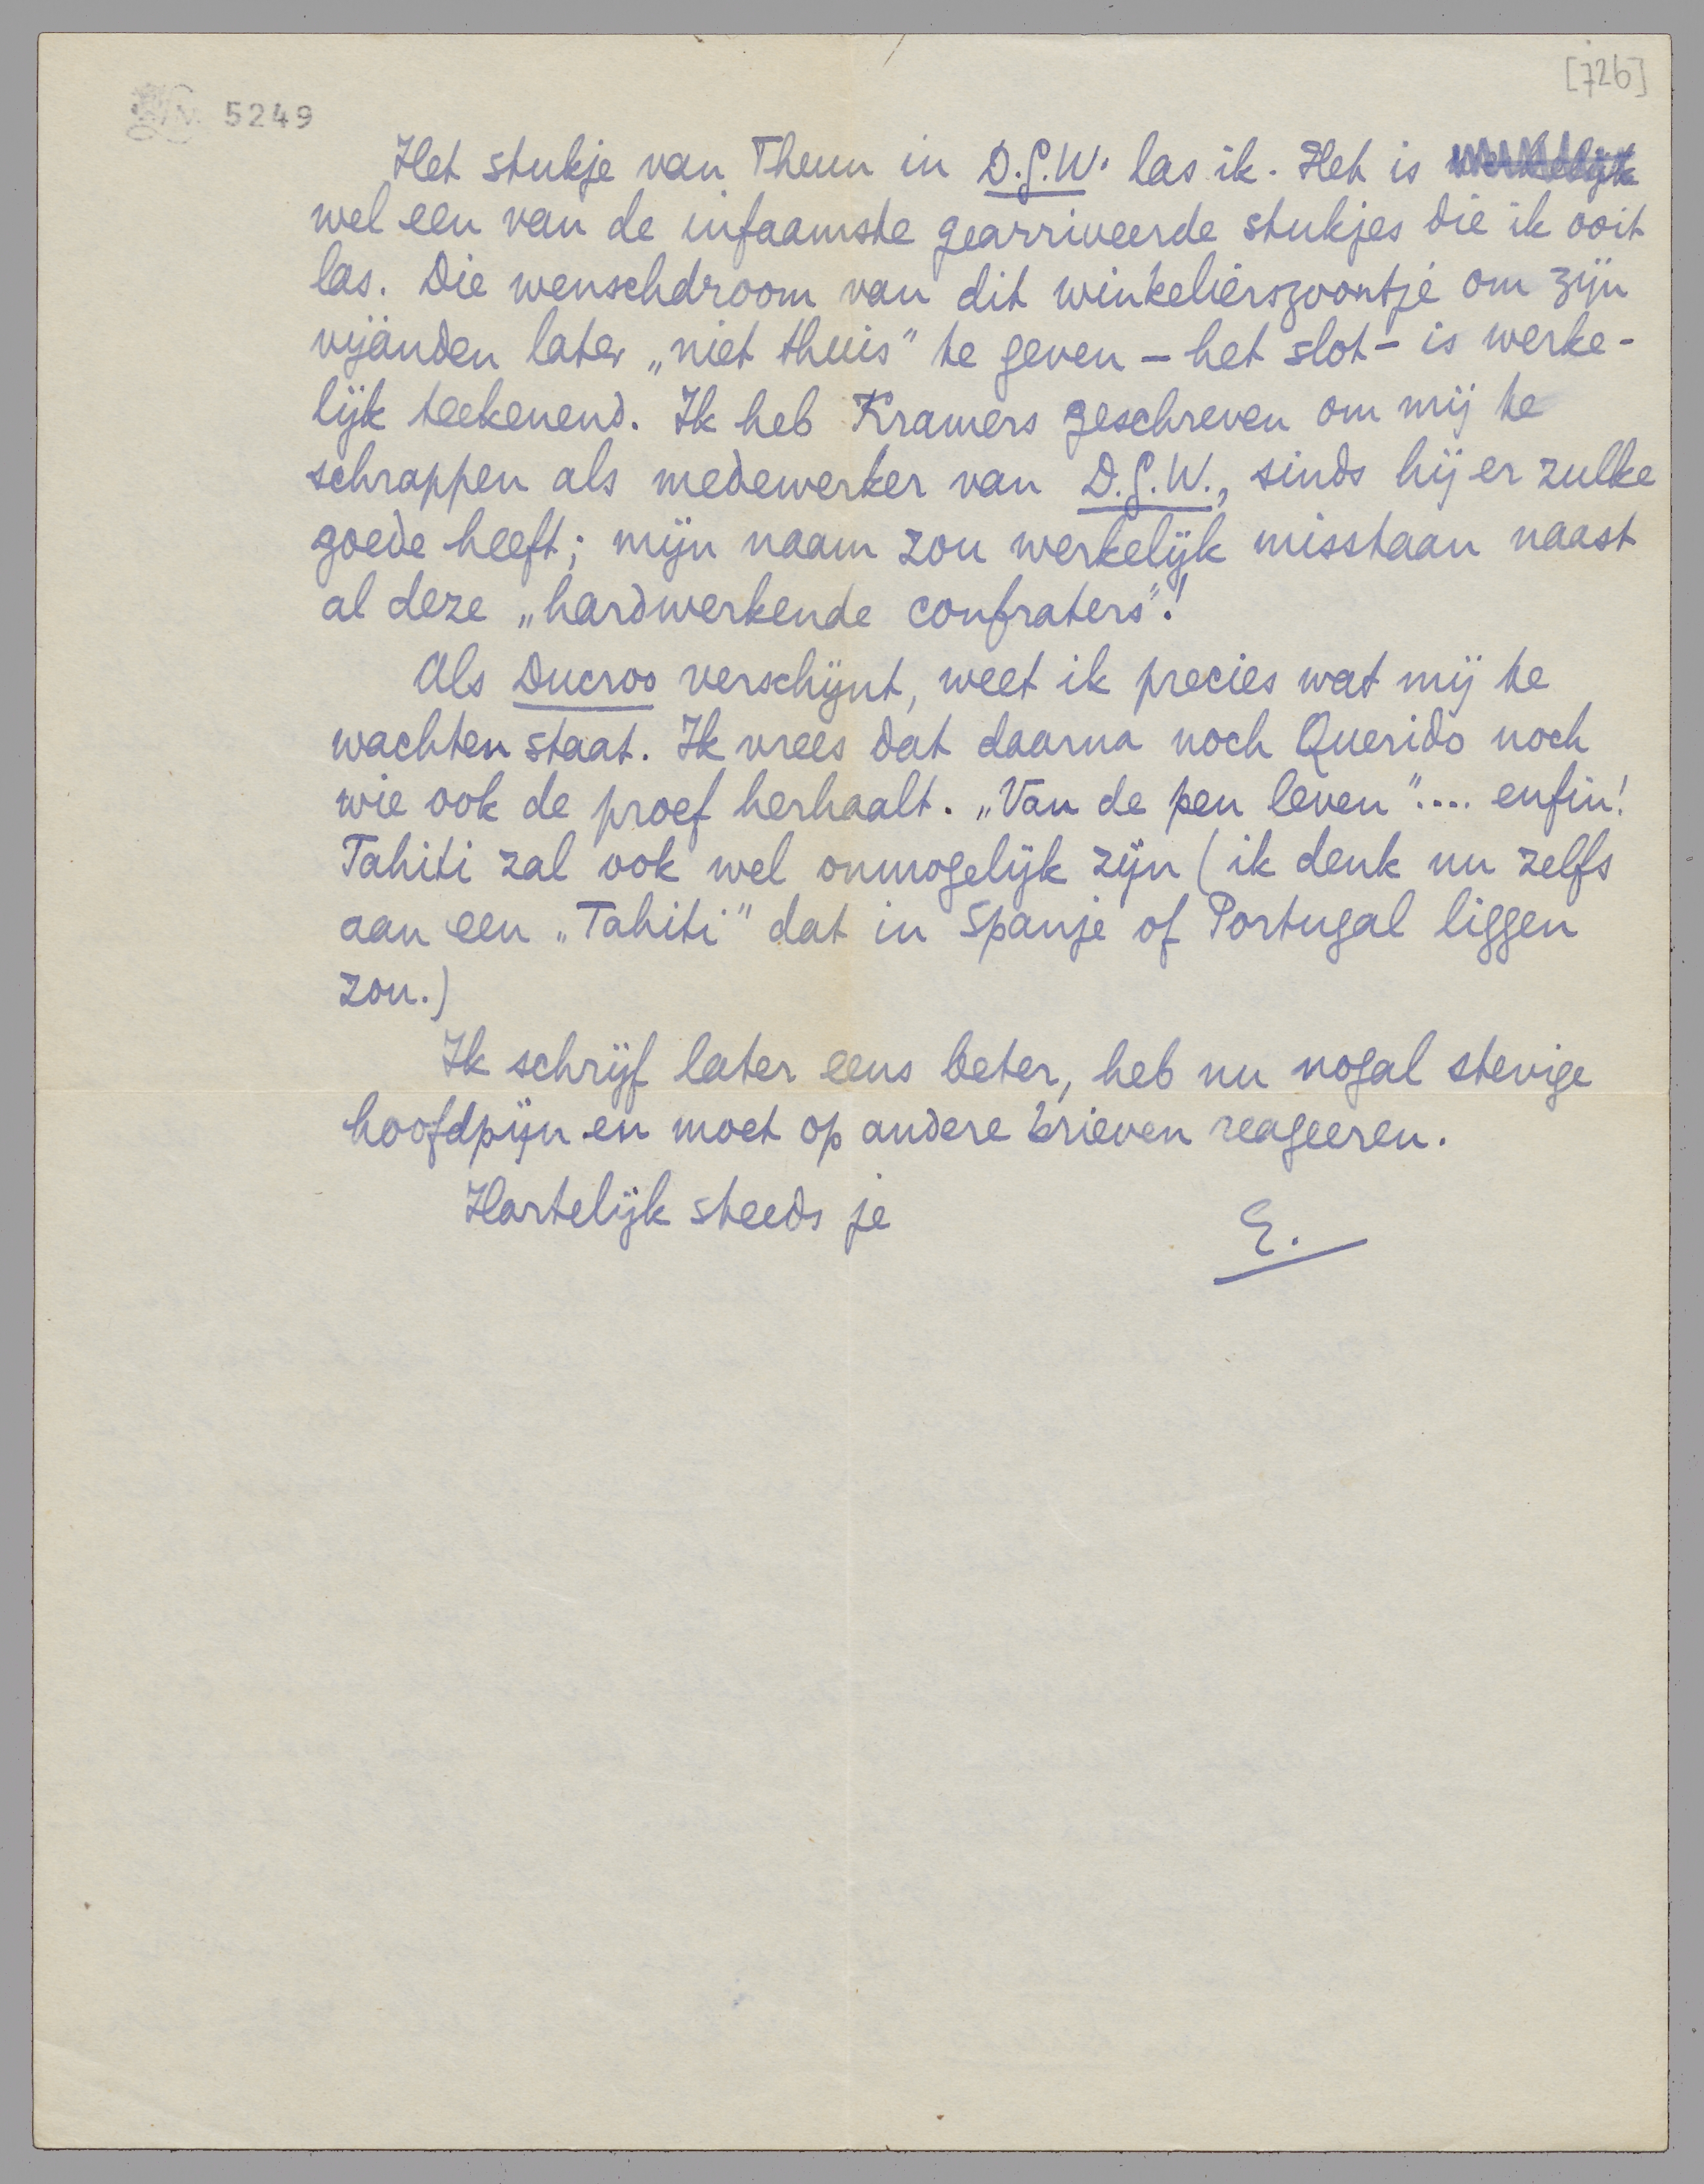 [726]
5249
Het stukje van Theun in D.G.W. las ik. Het is werkelijk
wel een van de infaamste gearriveerde stukjes die ik ooit
las. Die wenschdroom van dit winkelierszoontje om zijn
vijanden later „niet thuis" te geven – het slot – is werke-
lijk teekenend. Ik heb Kramers geschreven om mij te
schrappen als medewerker van D.G.W., sinds hij er zulke
goede heeft; mijn naam zou werkelijk misstaan naast
al deze „hardwerkende confraters"!
Als Ducroo verschijnt, weet ik precies wat mij te
wachten staat. Ik vrees dat daarna noch Querido noch
wie ook de proef herhaalt. „Van de pen leven".... enfin!
Tahiti zal ook wel onmogelijk zijn (ik denk nu zelfs
aan een „Tahiti" dat in Spanje of Portugal liggen
zou.)
Ik schrijf later eens beter, heb nu nogal stevige
hoofdpijn en moet op andere brieven reageeren.
Hartelijk steeds je
E.